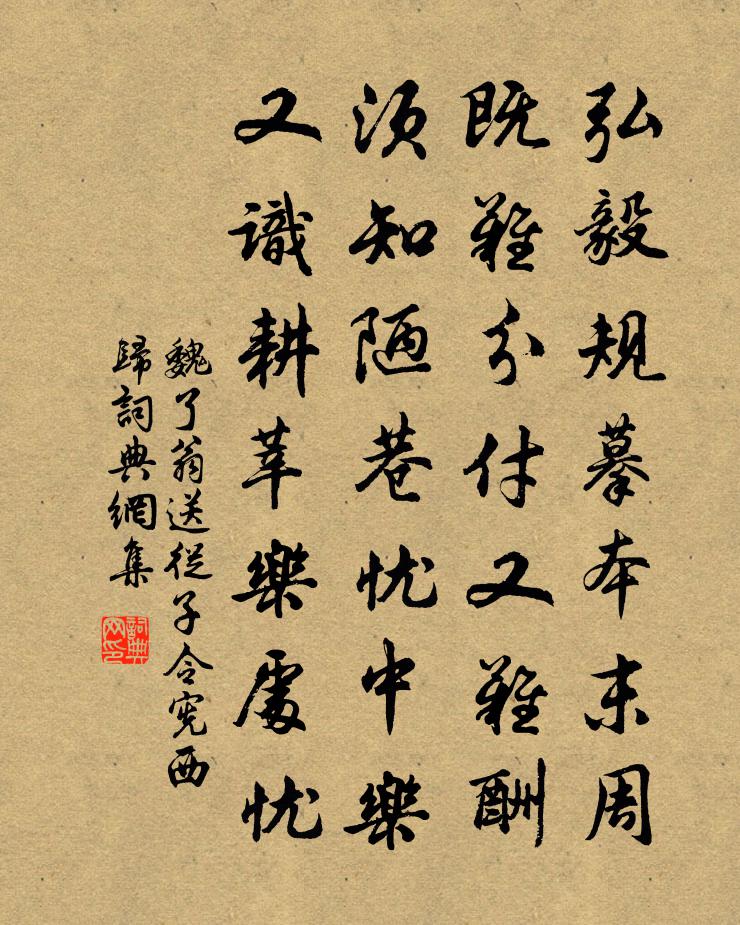 弘毅規摹本末周
既難分付又難酬
須知陋巷忧中樂
又識耕莘樂處忧
魏了翁送從子令寃西
歸詞典網集
詞典網印